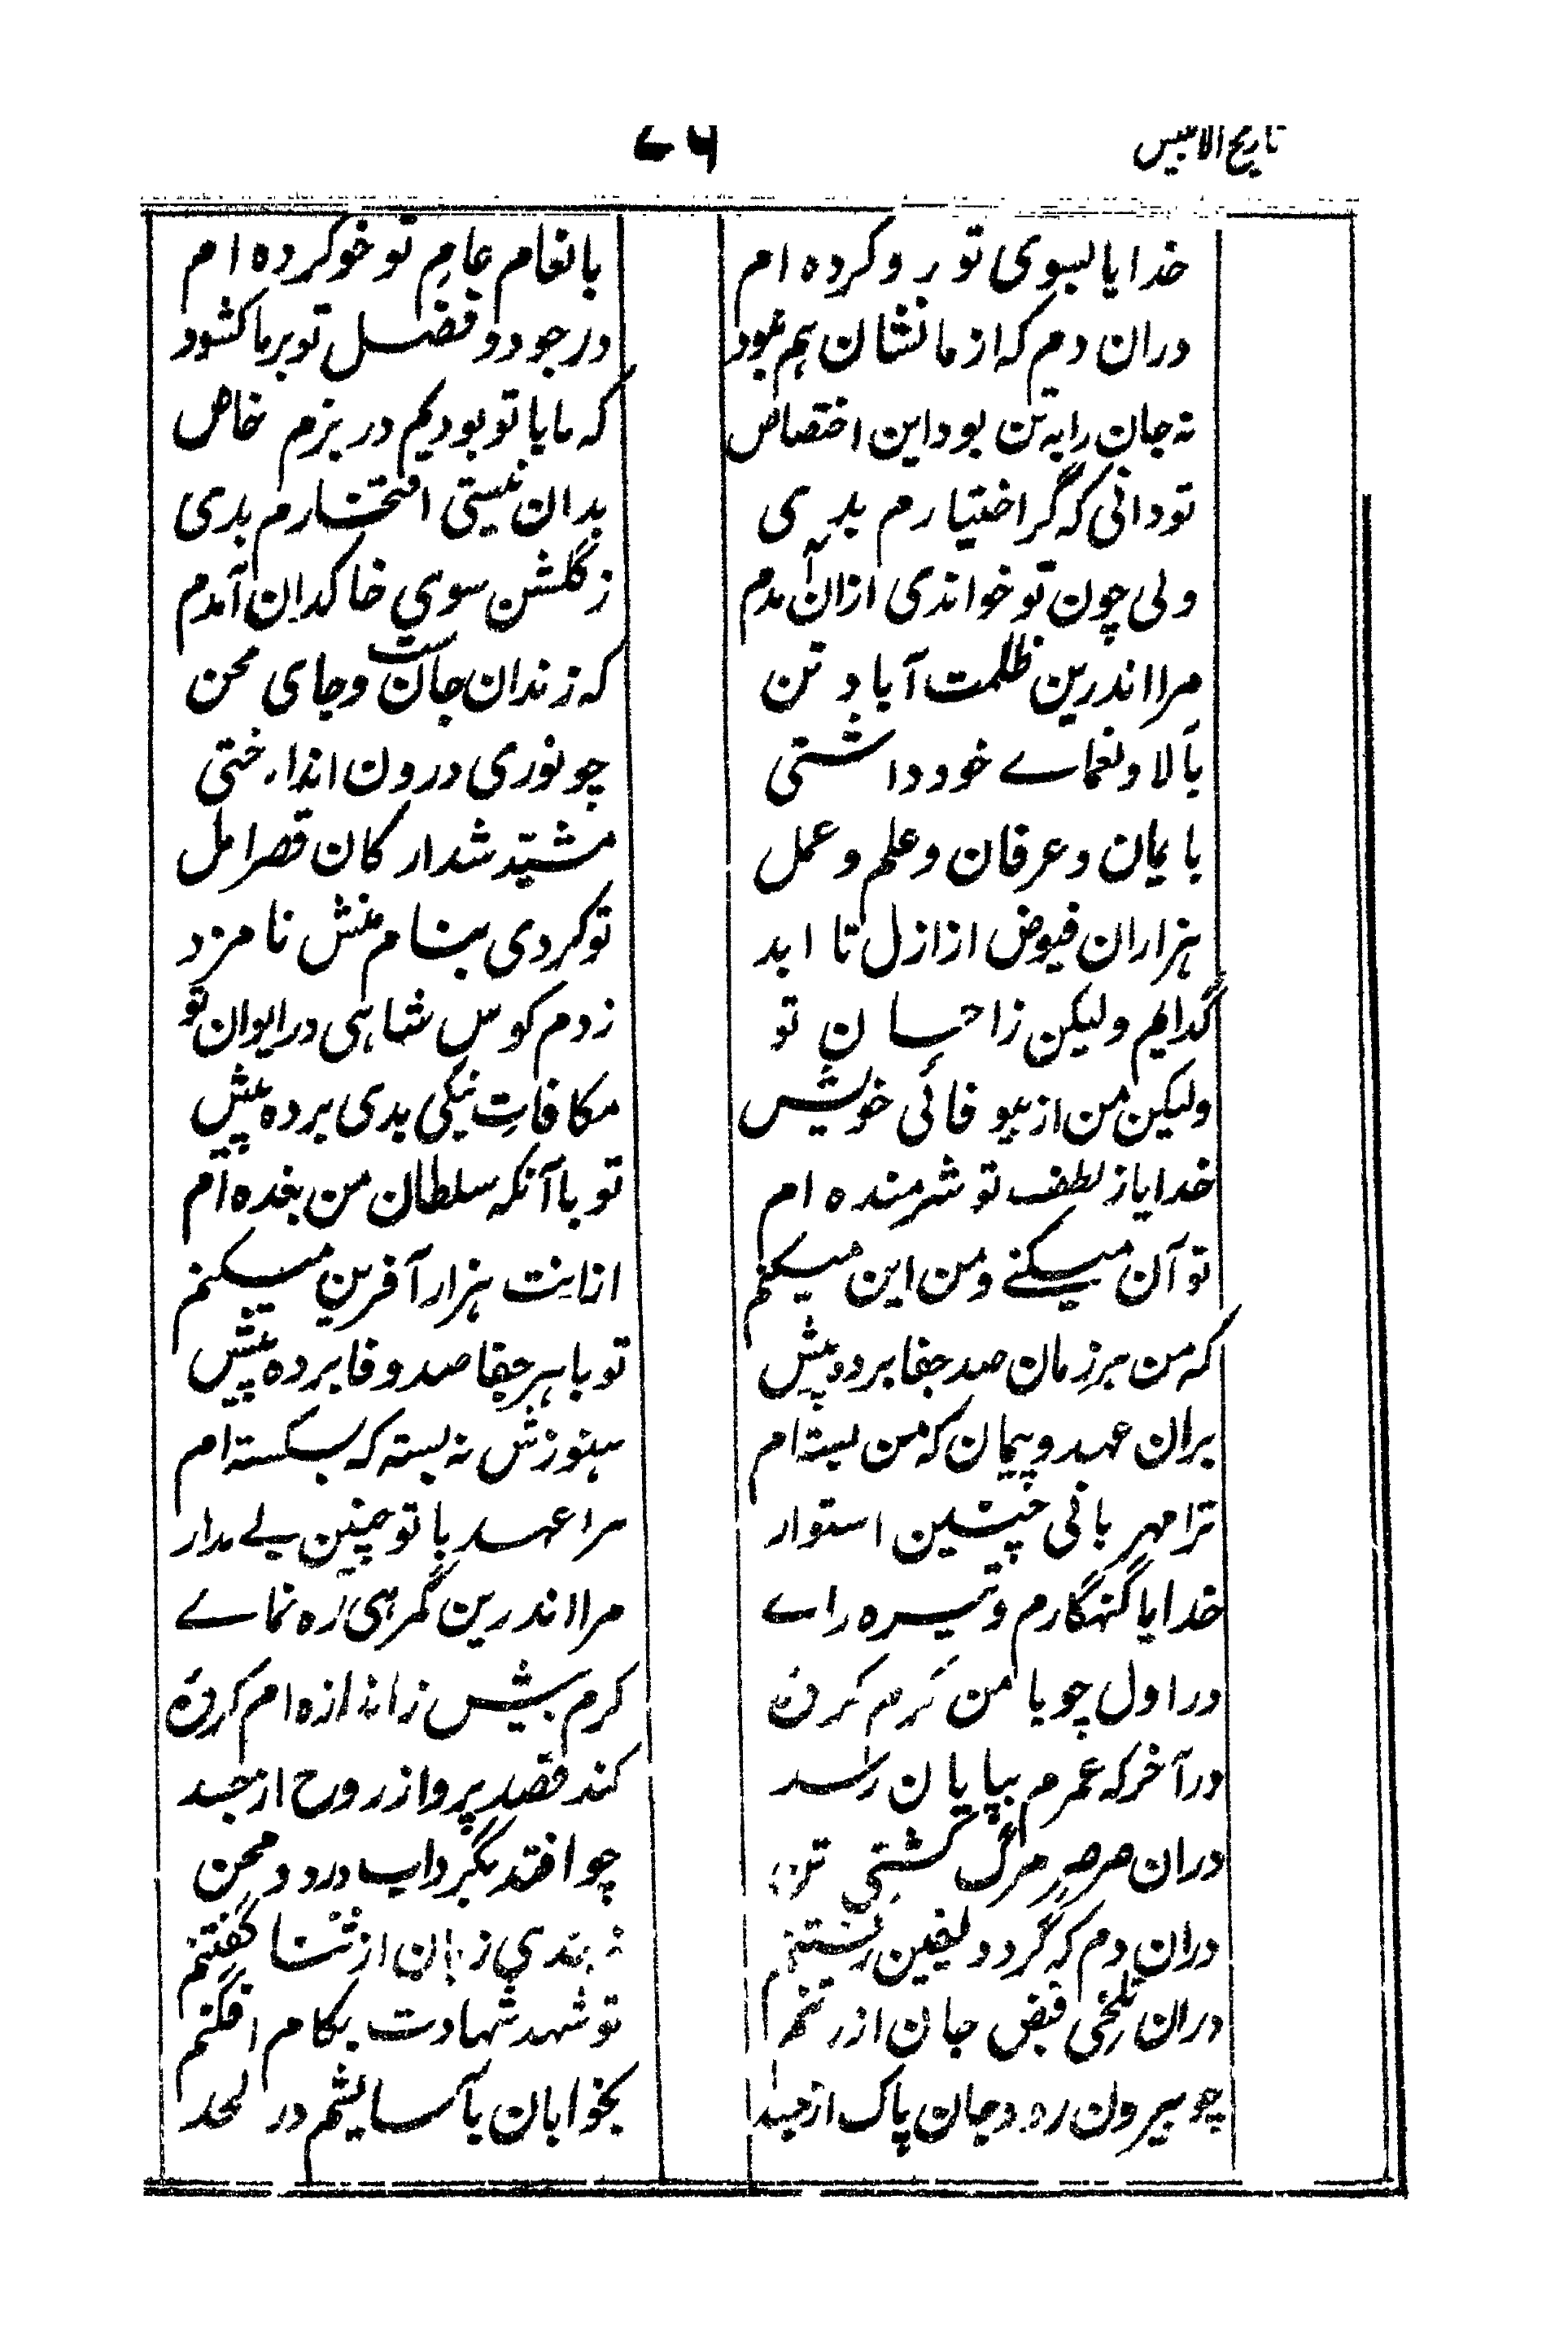 تاریخ الابلیس ۷۶
خدایا بسوی تو رو کرده ام بانعام عامِ تو خو کرده ام
دران دم که از ما نشان ہم نبود در جود و فضل تو بر ما کشود
نه جان را به تن بود این اختصاص که ما با تو بودیم در بزم خاص
تو دانی که گر اختیارم بدی بدان نیستی افتخارم بدی
ولی چون تو خواندی ازان آمدم ز گلشن سوی خاکدان آمدم
مرا اندرین ظلمت آباد تن که زندان جان ست و جای محن
بآلا و نعماے خود داشتی چو نوری درون انداختی
بایمان و عرفان و علم و عمل مشید شد ارکان قصر امل
ہزاران فیوض از ازل تا ابد تو کردی بنام منش نامزد
گدایم ولیکن ز احسانِ تو زدم کوس شاہی در ایوان تو
ولیکن من از بیوفائی خویش مکافاتِ نیکی بدی برده پیش
خدایا ز لطف تو شرمنده ام تو با آنکه سلطان من بنده ام
تو آن میکنے و من این میکنم ازاینت ہزار آفرین میکنم
که من ہر زمان صد جفا برده پیش تو با ہر جفا صد وفا برده پیش
بران عہد و پیمان که من بسته ام ہنوزش نه بسته که بشکسته ام
ترا مہربانی چنین استوار مرا عہد با تو چنین بے مدار
خدایا گنہگارم و تیره راے مرا اندرین گمرہی ره نماے
در اول چو با من کرم کردهٔ کرم بیش ز اندازه ام کردهٔ
در آخر که عمرم بپایان رسد کند قصد پرواز روح از جسد
دران صرصرِ مرگ کشتیِ تن چو افتد بگرداب درد و محن
دران دم که گردد یقین رفتنم نه بندی زبان از ثنا گفتنم
دران تلخی قبض جان از تنم تو شہد شہادت بکام افگنم
چو بیرون رود جان پاک از جسد بخوابان بآسایشم در لحد